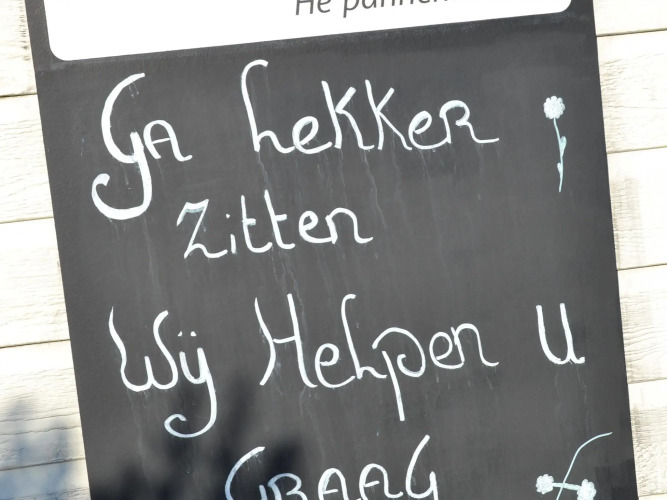 He pannen
Ga Lekker
Zitten
Wij Helpen U
GRAAG